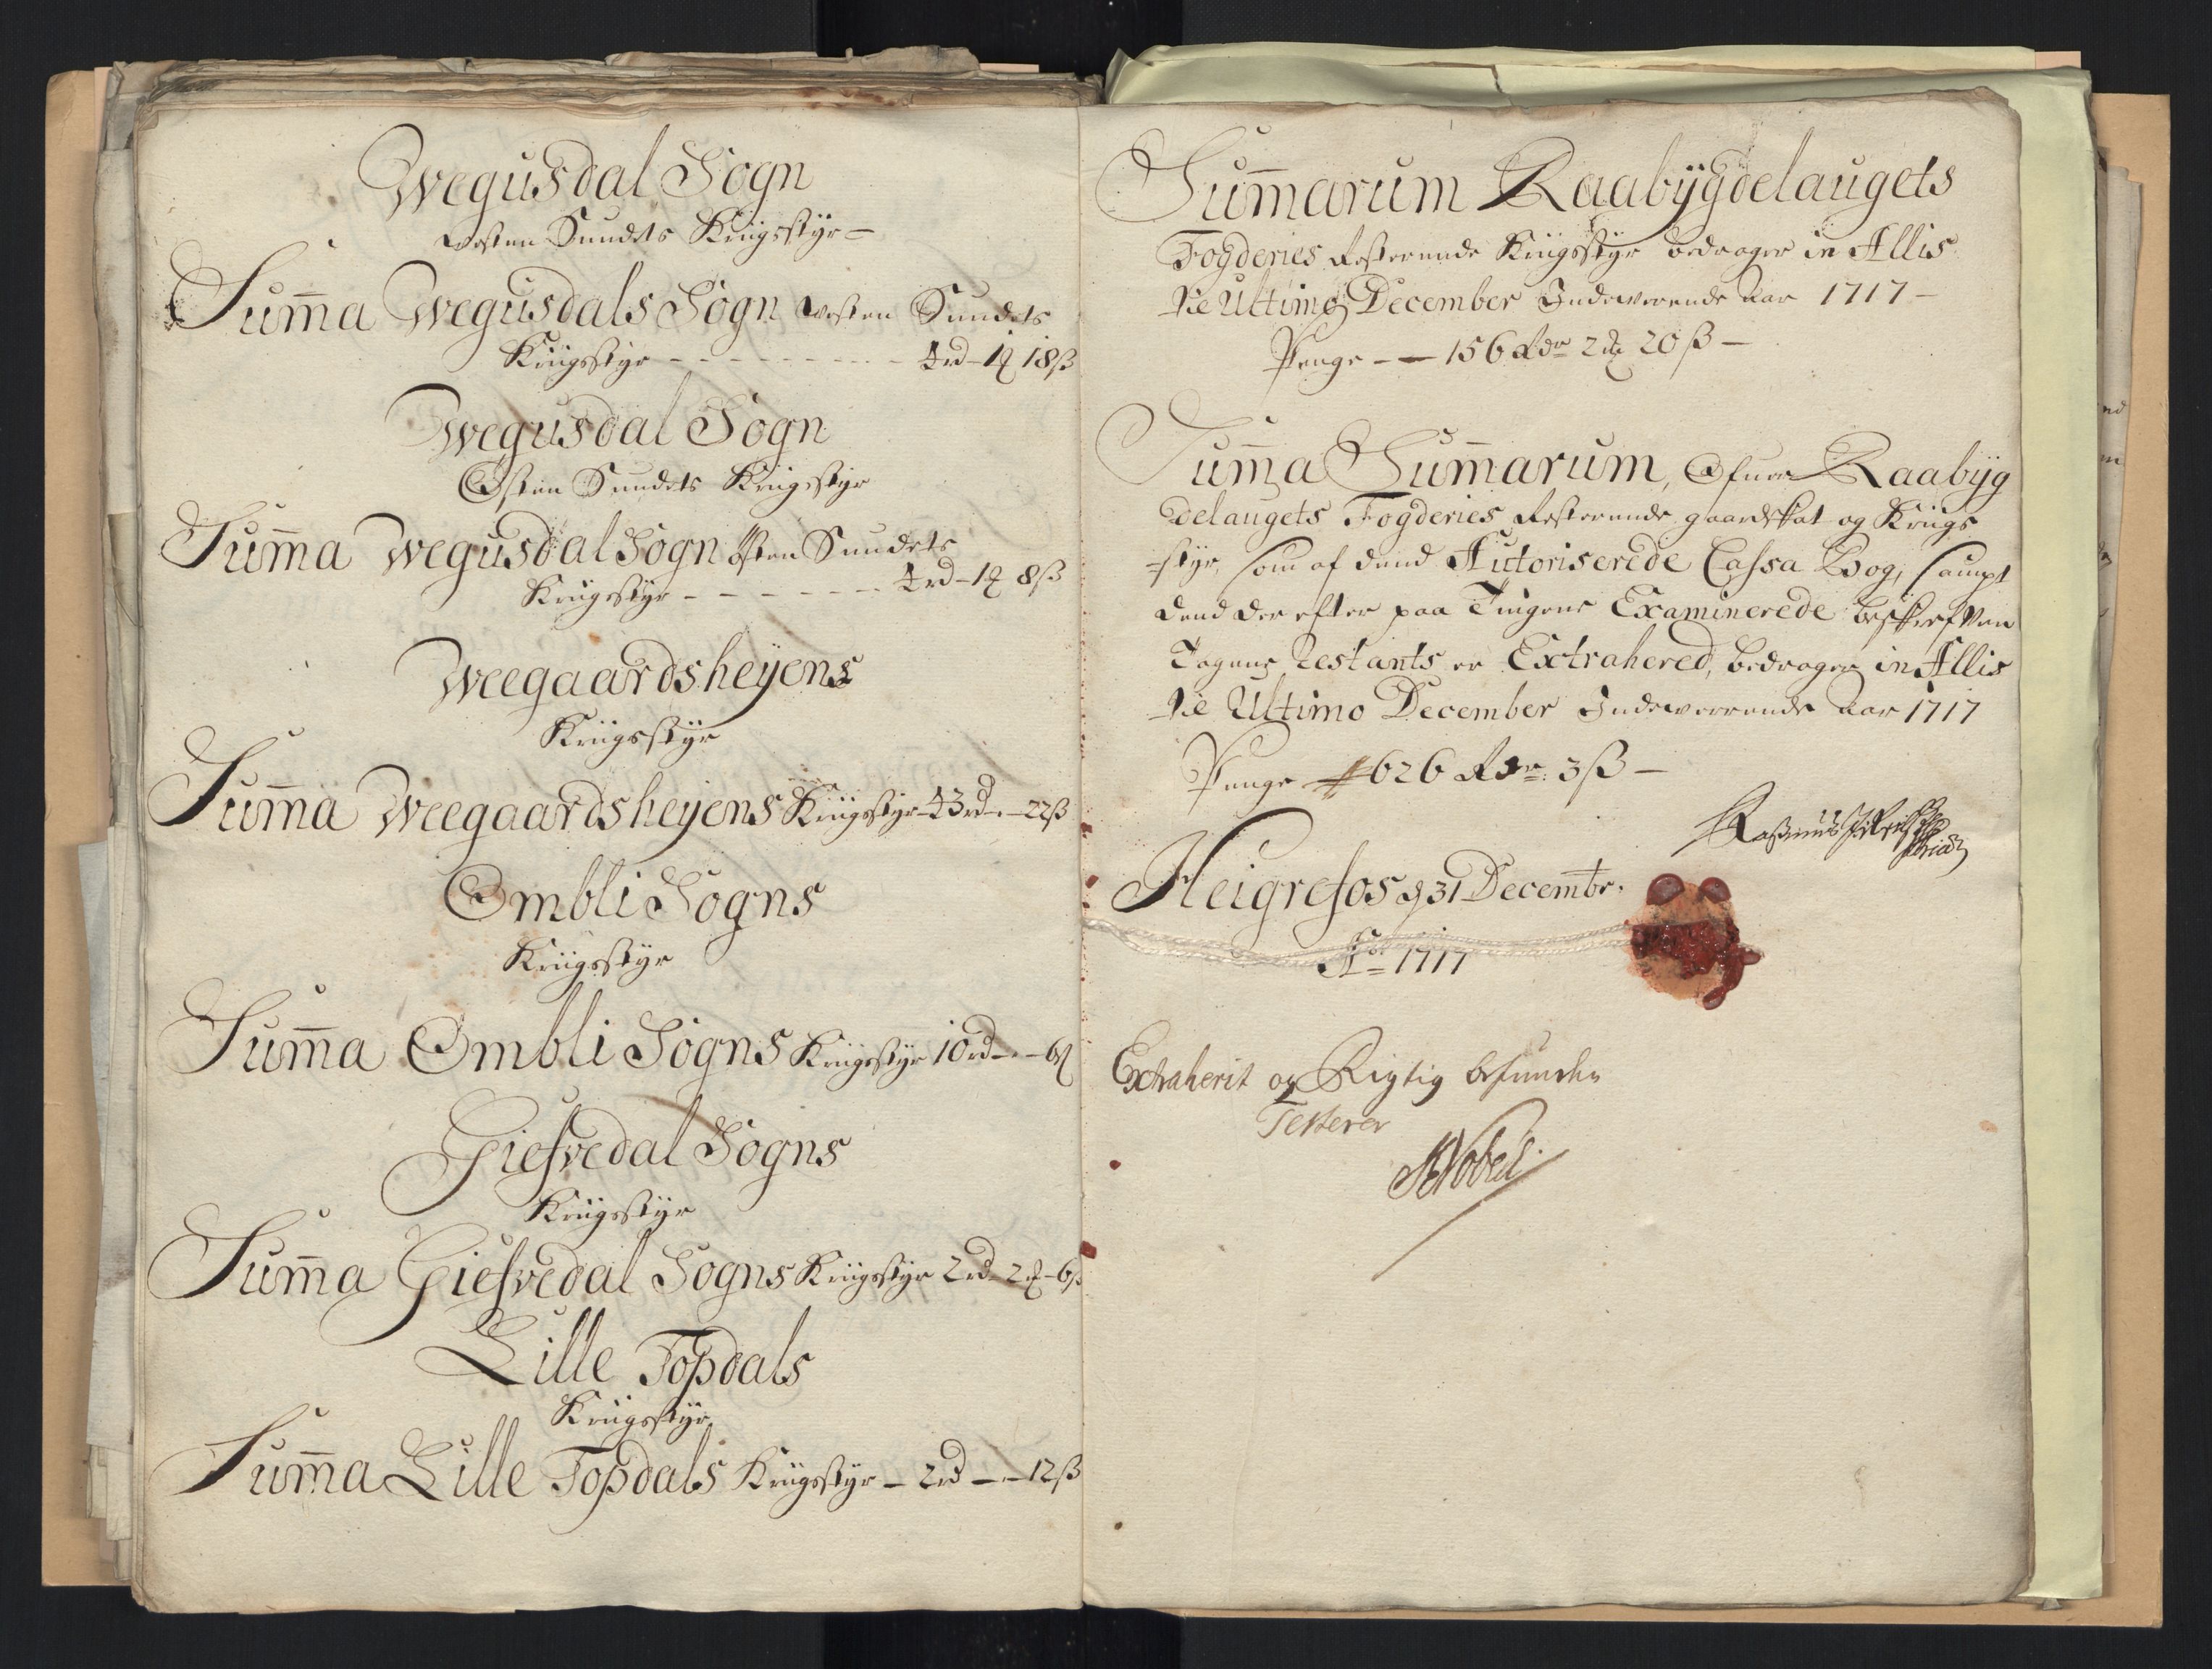 Wegusdal Sogn
westen Sundets Krigsstÿr –
Suma Wegusdals Sogn westen Sundets
Krigsstÿr - - - - - - - - - 4rd – 1 18ß
Wegusdal Sogn
Østen Sundets Krigsstÿr
Suma Wegusdal Sogn østen Sundets
Krigsstÿr - - - - - - - 4rd – 1 8ß
Weegaardsheÿens
Krigsstÿr
Suma Weegaardsheÿens Krigsstÿr 43rd – 22ß
Ombli Sogns
Krigsstÿr
Suma Ombli Sogns Krigsstÿr 10rd – 6
Giefvedal Sogns
Krigsstÿr
Suma Giefvedal Sogns Krigsstÿr 2rd – 2 – 6ß
Lille Topdals
Krigsstÿr
Suma Lille Topdals Krigsstÿr – 2rd – 12ß
Sumarum Raabÿgdelaugets
Fogderies Resterende Krigsstÿr bedrager in Allis
Til Ultimo December Indeverende Aar 1717 –
Penge – – 156 Rdr 2 20ß –
Suma Sumarum, Ofver Raabÿg
delaugets Fogderies Resterende gaardskat og Krigs
-stÿr, som af dend Autoriserede Cassa Bog, sampt
dend der efter paa Tingene Examinerede beskrefven
Tagene Restants er Extrahered, bedrager in Allis
Til Ultimo December Indeverrende Aar 1717
Penge 626 Rdr: 3ß –
Rasmus
Heigrefos d 31 Decembr.
Ao 1717
Extraherit og Rigtig befunden
Testerer
Nobel